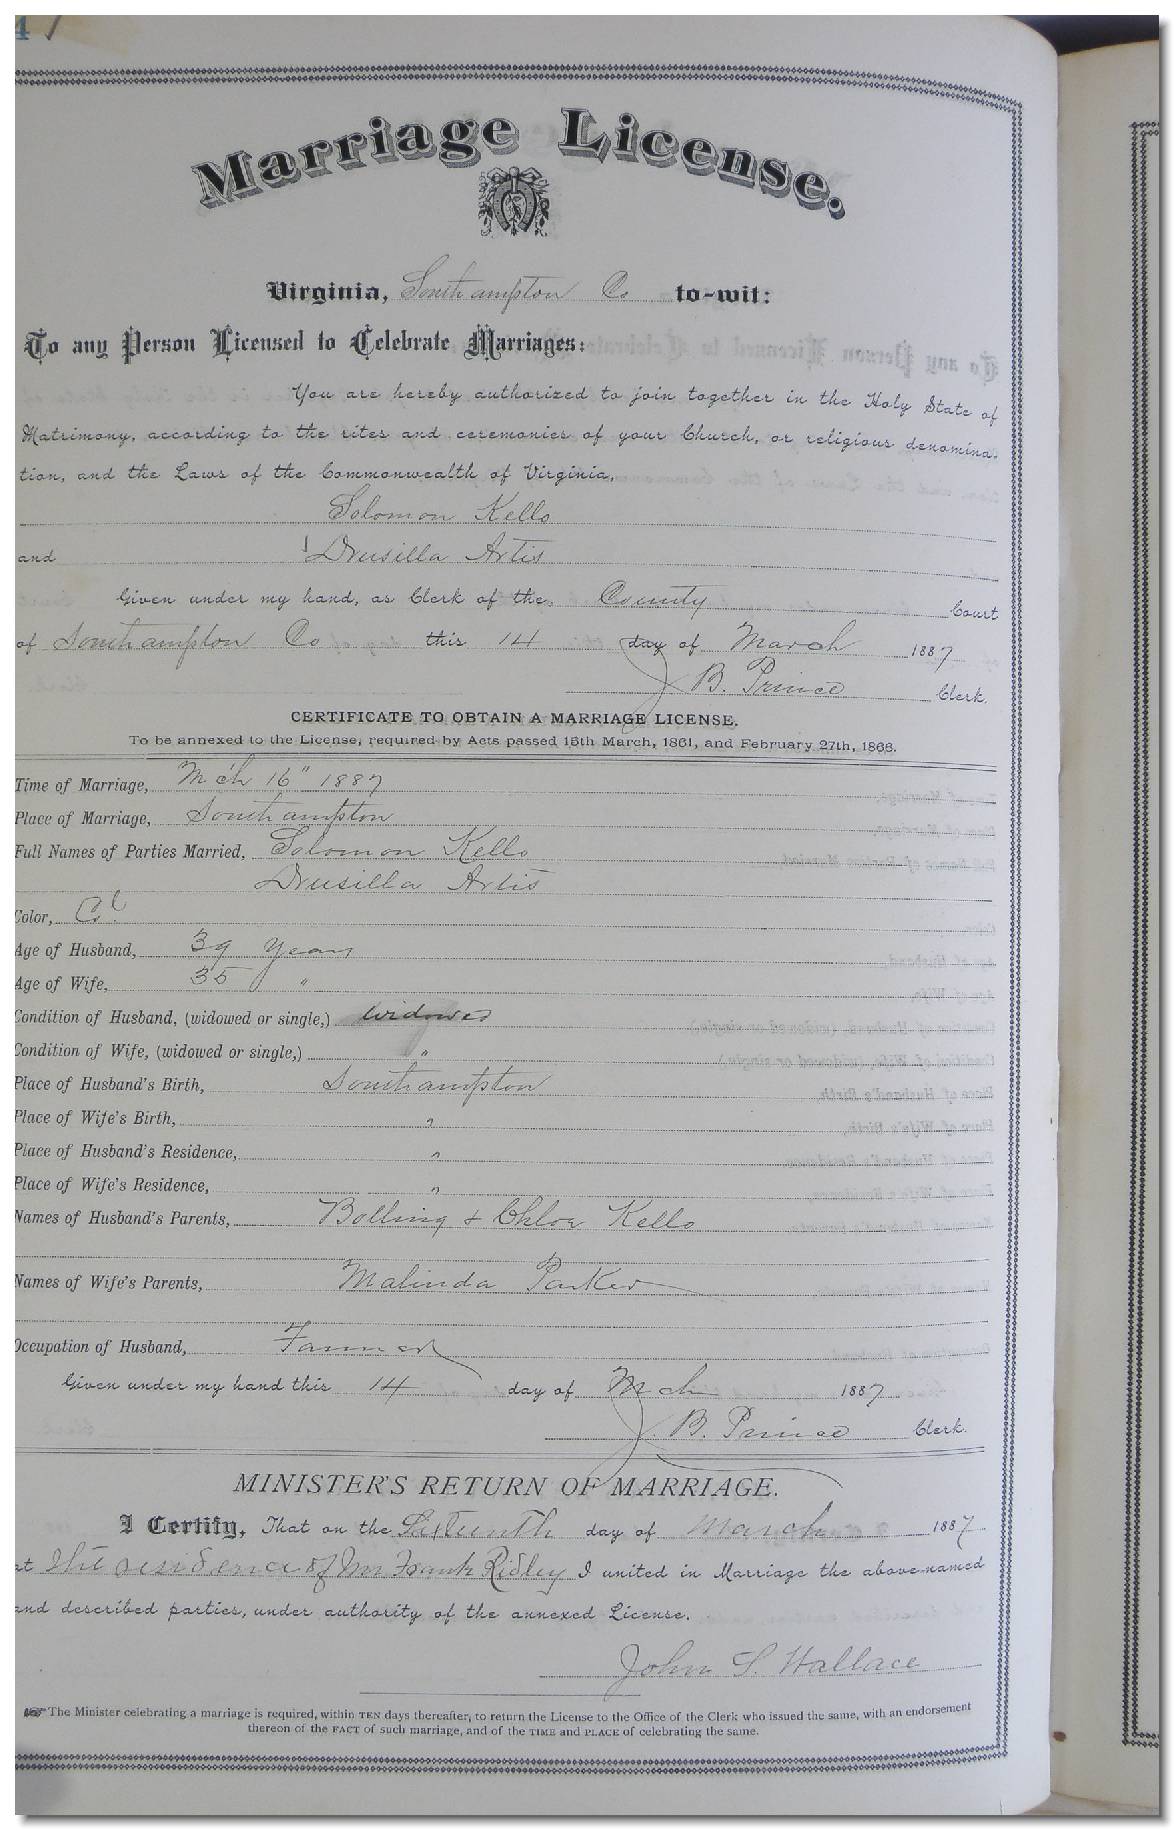 4
Marriage License.
Virginia, Southampton Co to-wit:
To any Person Licensed to Celebrate Marriages:
You are hereby authorized to join together in the Holy State of
Matrimony, according to the rites and ceremonies of your Church, or religious denomina-
tion, and the Laws of the Commonwealth of Virginia,
Solomon Kello
and Drusilla Artis
Given under my hand, as Clerk of the County Court
of Southampton Co this 14 day of March 1887
J. B. Prince Clerk.
CERTIFICATE TO OBTAIN A MARRIAGE LICENSE.
To be annexed to the License, required by Acts passed 15th March, 1861, and February 27th, 1866.
Time of Marriage, Mch 16" 1887
Place of Marriage, Southampton
Full Names of Parties Married, Solomon Kello
Drusilla Artis
Color, Col
Age of Husband, 39 years
Age of Wife, 35 "
Condition of Husband, (widowed or single,) widowed
Condition of Wife, (widowed or single,) "
Place of Husband's Birth, Southampton
Place of Wife's Birth, "
Place of Husband's Residence, "
Place of Wife's Residence, "
Names of Husband's Parents, Bolling & Chloe Kello
Names of Wife's Parents, Malinda Parker
Occupation of Husband, Farmer
Given under my hand this 14 day of Mch 1887
J. B. Prince Clerk.
MINISTER'S RETURN OF MARRIAGE.
I Certify, That on the Sixteenth day of March 1887
at the residence of Frank Ridley I united in Marriage the above-named
and described parties, under authority of the annexed License.
John S. Wallace
The Minister celebrating a marriage is required, within TEN days thereafter, to return the License to the Office of the Clerk who issued the same, with an endorsement
thereon of the FACT of such marriage, and of the TIME and PLACE of celebrating the same.